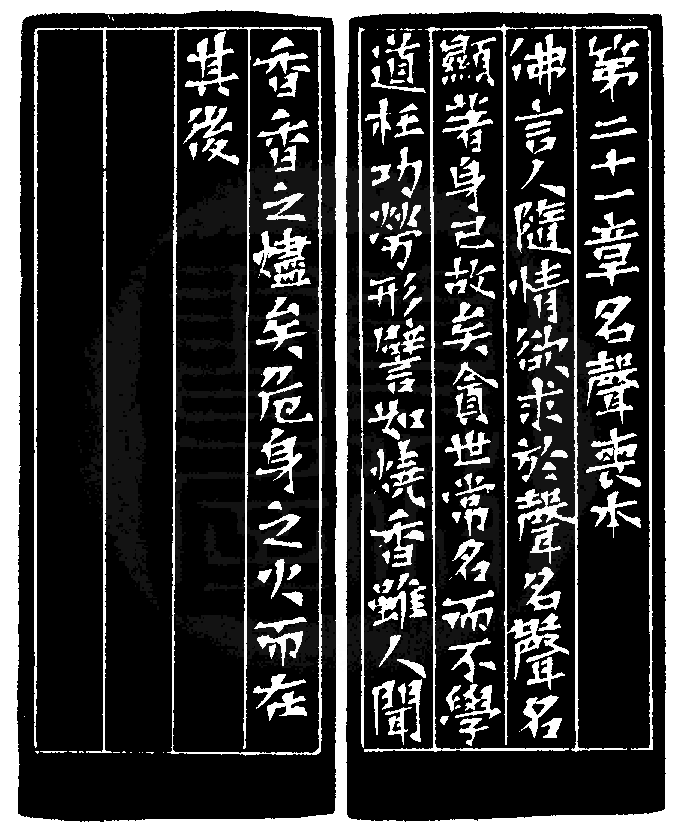 第二十一章名聲喪本
佛言人隨情欲求於聲名聲名
顯著身已故矣貪世常名而不學
道枉功勞形譬如燒香雖人聞
香香之燼矣危身之火而在
其後